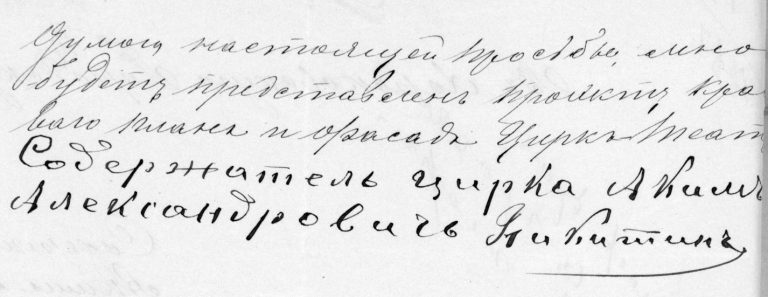 думою настоящей просьбы, мною
будетъ представленъ проектъ кра
ваго плана и фасада Цирка Теат
Содержатель цирка Акимъ
Александровичъ Никитинъ